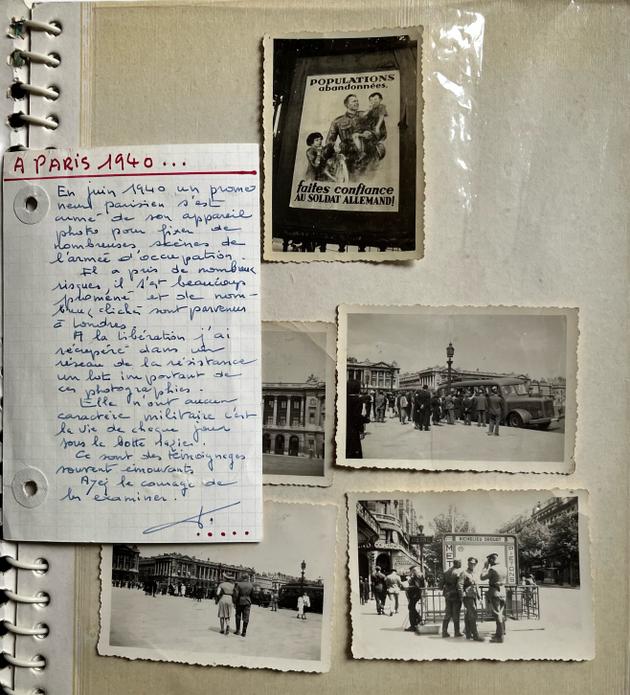 A PARIS 1940...
En juin 1940 un prome
neur parisien s'est
armé de son appareil
photo pour fixer de
nombreuses scènes de
l'armée d'occupation.
Il a pris de nombreux
risques, il s'est beaucoup
promené et de nom-
breux clichés sont parvenus
à Londres
A la libération j'ai
récupéré dans un
réseau de la résistance
un lot important de
ces photographies.
Elle n'ont aucun
caractère militaire c'est
la vie de chaque jour
sous la botte nazie.
Ce sont des témoignages
souvent émouvants
Ayez le courage de
les examiner.
POPULATIONS
abandonnées,
faites confiance
AU SOLDAT ALLEMAND!
RICHELIEU DROUOT